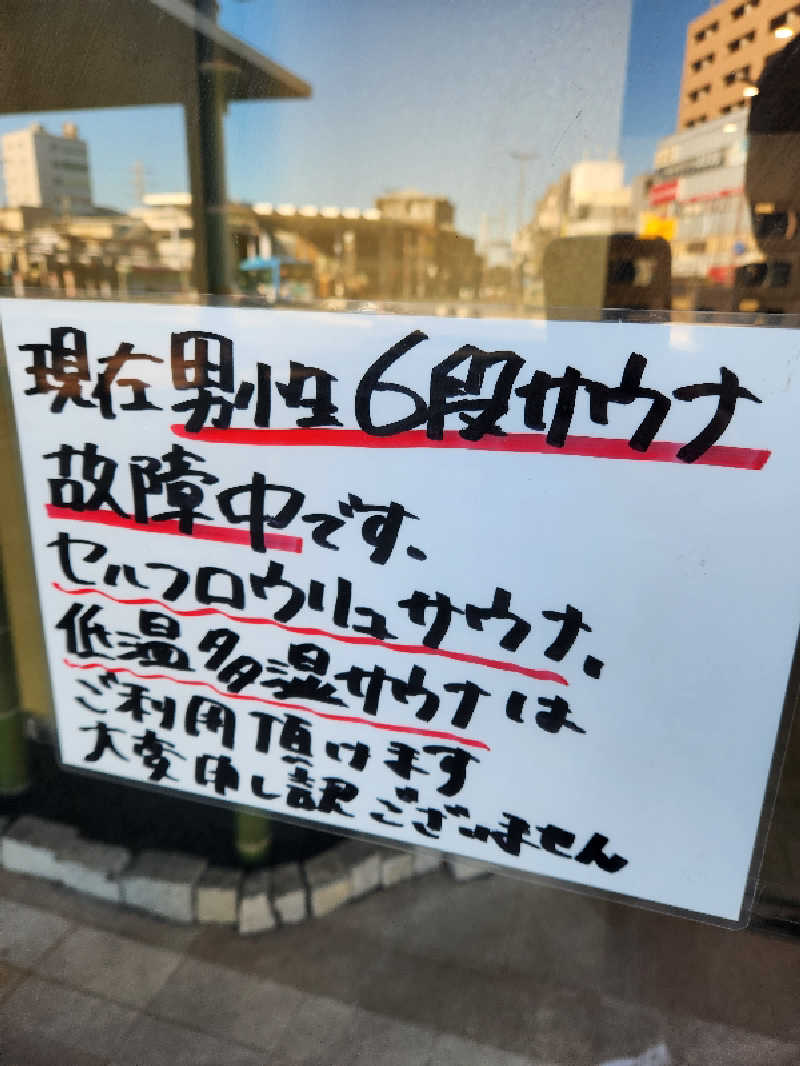 現在男性6段サウナ
故障中です、
セルフロウリュサウナ、
低温多湿サウナは
ご利用頂けます
大変申し訳ございません